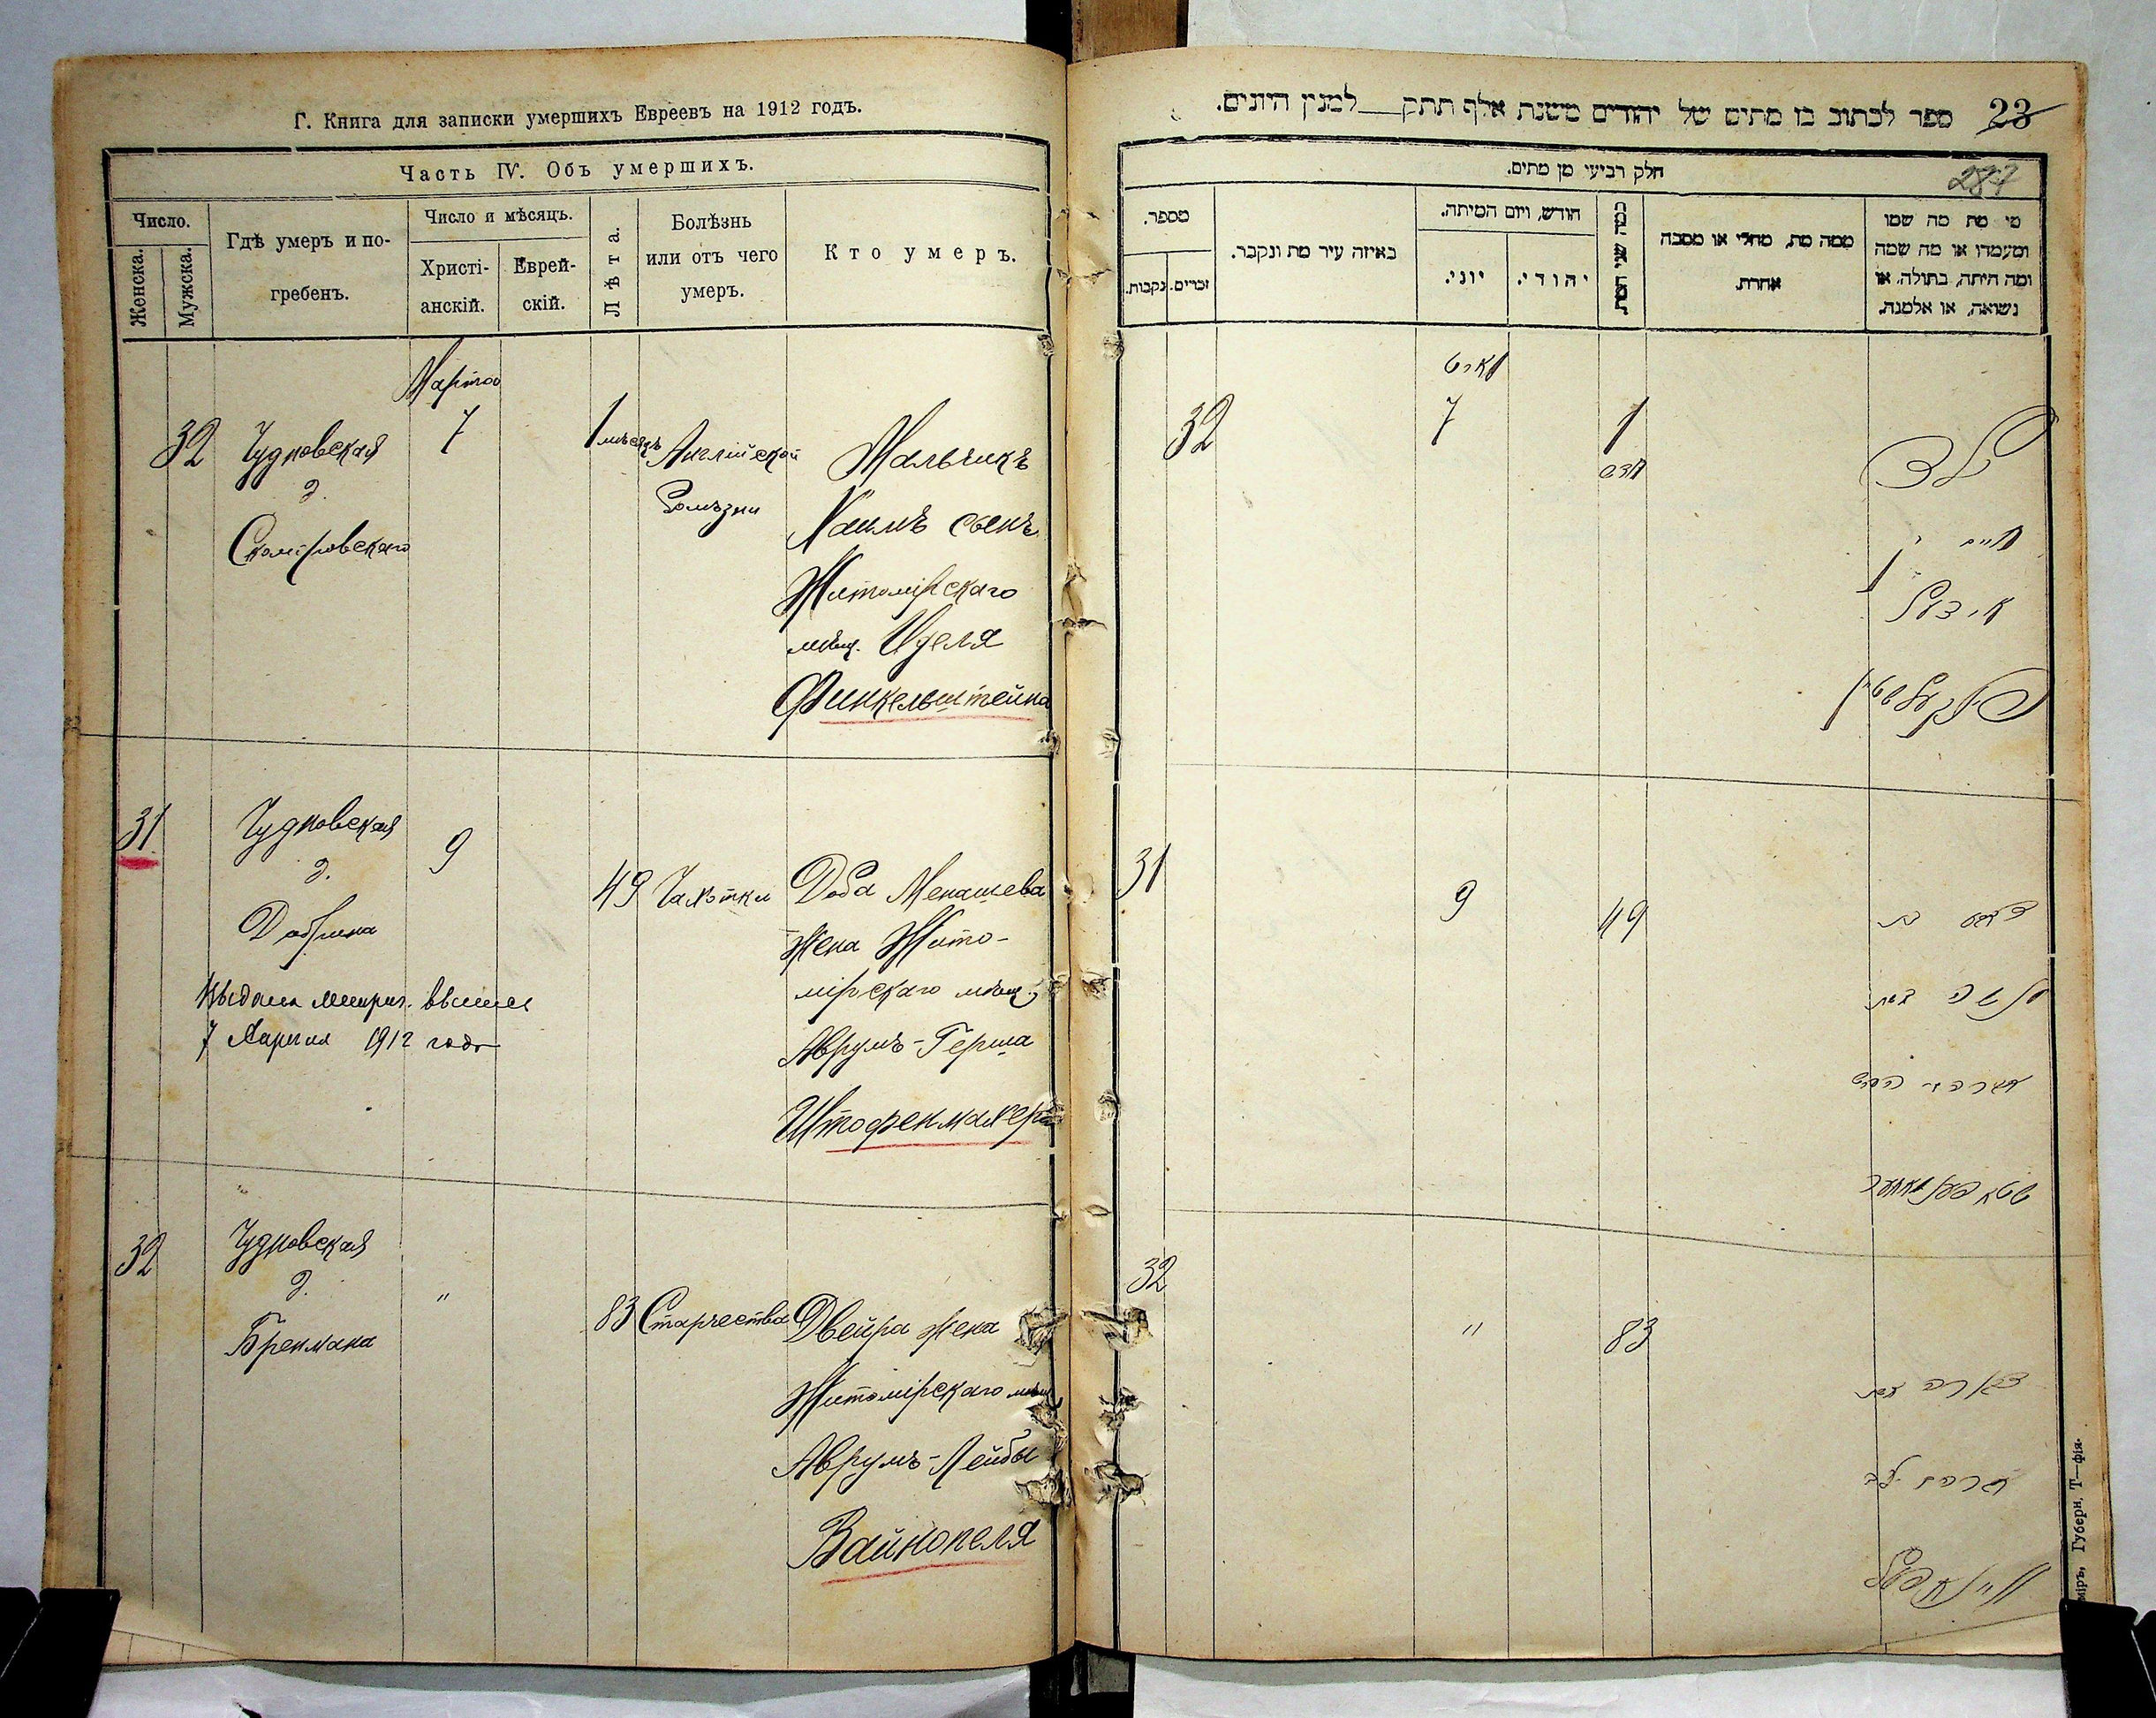 Г. Книга для записки умершихъ Евреевъ на 1912 годъ.
Часть IV. Объ умершихъ.
Число.
Женска.
Мужска.
Гдѣ умеръ и по-
гребенъ.
Число и мѣсяцъ.
Христі-
анскій.
Еврей-
скій.
Лѣта.
Болѣзнь
или отъ чего
умеръ.
Кто умеръ.
Марта
32
Чудновская
д.
7
1 мѣсяцъ
Англійской
болѣзни
Мальчикъ
Хаимъ сынъ
Житомірскаго
мѣщ. Иделя
Финкельштейна
31
Чудновская
д.
9
49
Чахотки
Доба Менашева
жена Жито-
мірскаго мѣщ.
Аврумъ-Герша
Штофенмахера
7 Апрѣля 1912 года
32
Чудновская
д.
Бренмана
"
83
Старчества
Двейра жена
Житомірскаго мѣщ.
Аврумъ-Лейбы
Вайнопеля
23
ספר לכתוב בו מתים של יהודים משנת אלף תתק למנין היונים.
287
חלק רביעי מן מתים.
מספר.
זכרים.
נקבות.
באיזה עיר מת ונקבר.
חודש, ויום המיתה.
יוני.
יהודי.
כמה שני המת
ממה מת, מחלי או מסבה
אחרת.
מי מת מה שמו
ומעמדו או מה שמה
ומה היתה, בתולה, או
נשואה, או אלמנה.
מארט
32
7
1
חדש
ילד
חיים
פינקעלשטיין
31
9
49
32
"
83
אברהם ליב
וויינאפעל
міръ, Губерн. Т—фія.